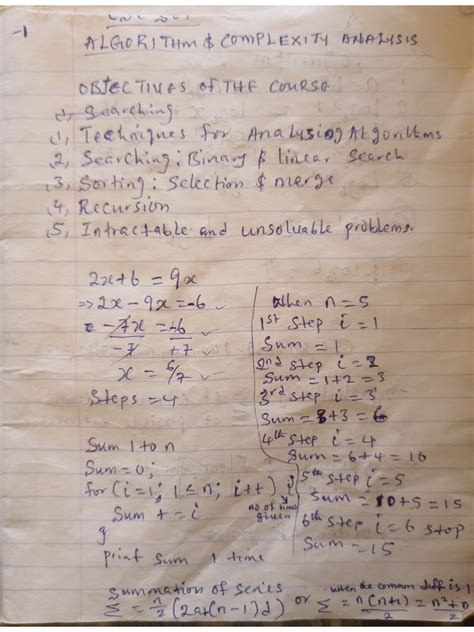 -1
ALGORITHM & COMPLEXITY ANALYSIS
OBJECTIVES OF THE COURSE
Searching
1, Techniques for Analysing Algorithms
2, Searching: Binary & linear Search
3, Sorting: Selection & merge
4, Recursion
5, Intractable and unsoluable problems.
2x+6 = 9x
=> 2x - 9x = -6 ✓
= -7x = -6 ✓
-7 +7
x = 6/7 ✓
Steps = 4
Sum 1 to n
Sum = 0;
for (i = 1; 1 ≤ n; i++) {
Sum += i
}
print sum 1 time
When n = 5
1st Step i = 1
Sum = 1
2nd step i = 2
Sum = 1+2 = 3
3rd step i = 3
Sum = 3+3 = 6
4th step i = 4
Sum = 6+4 = 10
5th step i = 5
Sum = 10+5 = 15
6th step i = 6 stop
Sum = 15
no of times
given
Summation of series
Σ = n/2 (2a+(n-1)d) or
when the common diff is 1
Σ = n(n+1)/2 = n²+n/2